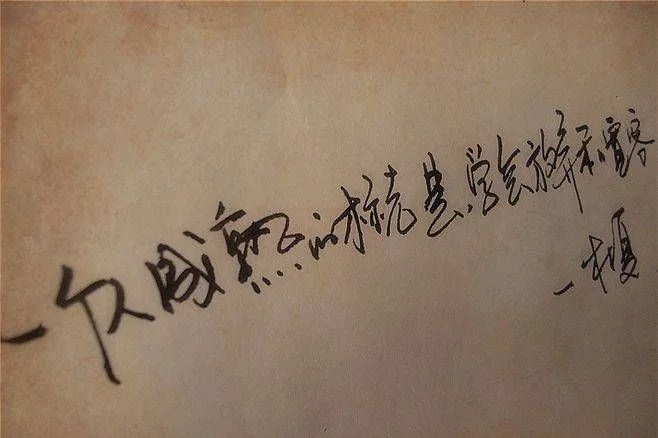 一个人成熟的标志是学会放弃和宽容
一榎